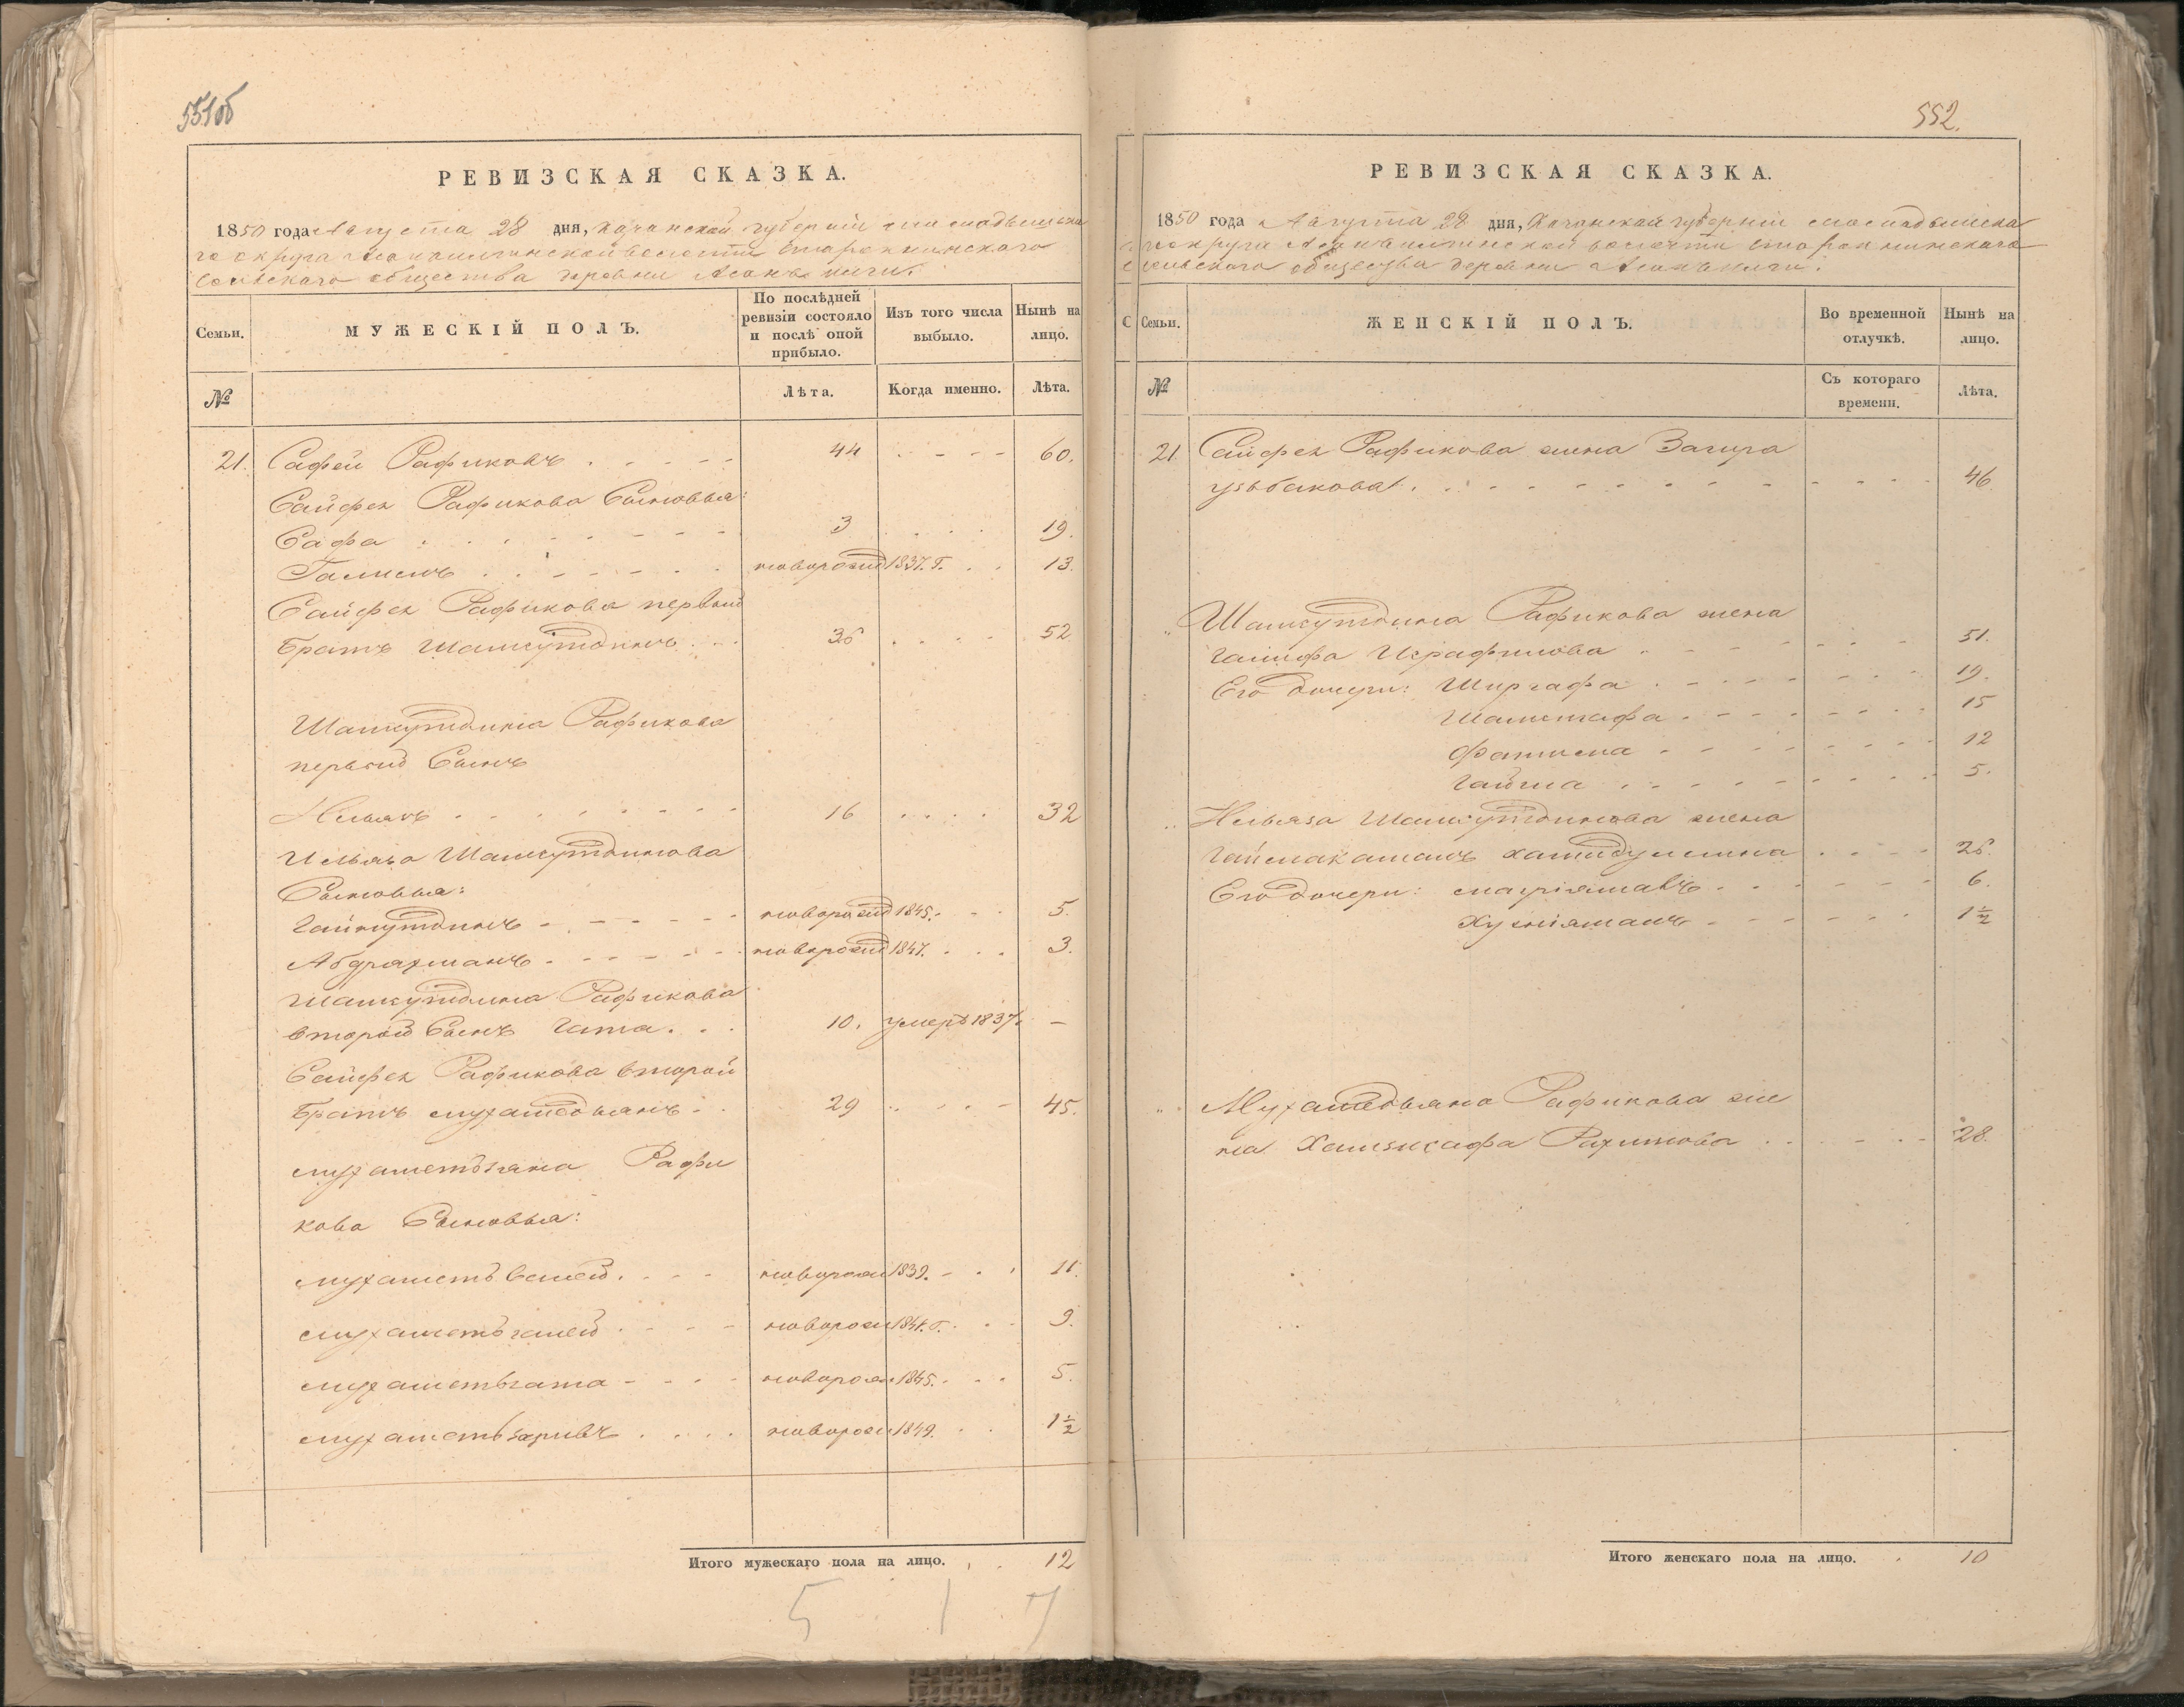 551об
РЕВИЗСКАЯ СКАЗКА.
1850 года Августа 28 дня, Казанской губернии мамадышска
го округа волости
сельскаго общества деревни
Семьи.
МУЖЕСКІЙ ПОЛЪ.
По послѣдней ревизіи состояло и послѣ оной прибыло.
Изъ того числа выбыло.
Нынѣ на лицо.
№
Лѣта.
Когда именно.
Лѣта.
21. Сафей Рафиковъ . 44 60.
Сайфея Рафикова Сыновья:
Сафа 3 19.
новорожд 1837. г. 13.
Сайфея Рафикова первый
братъ Шамсутдинъ 36 52
Шамсутдина Рафикова
первый Сынъ
Ильязъ 16 32
Ильяза Шамсутдинова
Сыновья:
Гайнутдинъ новорожд 1845. 5.
Абдрахманъ новорожд 1847. 3.
Шамсутдина Рафикова
второй Сынъ Гата. 10. умеръ 1837. —
Сайфея Рафикова второй
братъ мухаметьянъ 29 45.
мухаметьзяна Рафи
кова Сыновья:
мухаметьвелей. новорож 1839. 11.
мухаметьгалей новорож 1841. г. 9.
мухаметьгата новорож 1845. 5.
мухаметьзарифъ новорож 1849. 1½
Итого мужескаго пола на лицо. 12
5 1 7
552.
РЕВИЗСКАЯ СКАЗКА.
1850 года Августа 28 дня, Казанской губерніи мамадышска
го округа волости
сельскаго общества деревни
Семьи.
ЖЕНСКІЙ ПОЛЪ.
Во временной отлучкѣ.
Нынѣ на лицо.
№
Съ котораго времени.
Лѣта.
21. Сайфея Рафикова жена Загира
узьбекова 46
Шамсутдина Рафикова жена
Исрафилова 51.
Его дочери: Ширгафа 19.
Шамсигафа 15
Фатима 12
Гайша 5.
Ильяза Шамсутдинова жена
Хамидуллина 26.
Его дочери: 6.
Хуснiямалъ 1½
Мухаметьяна Рафикова же
на Рахимова 28.
Итого женскаго пола на лицо. 10